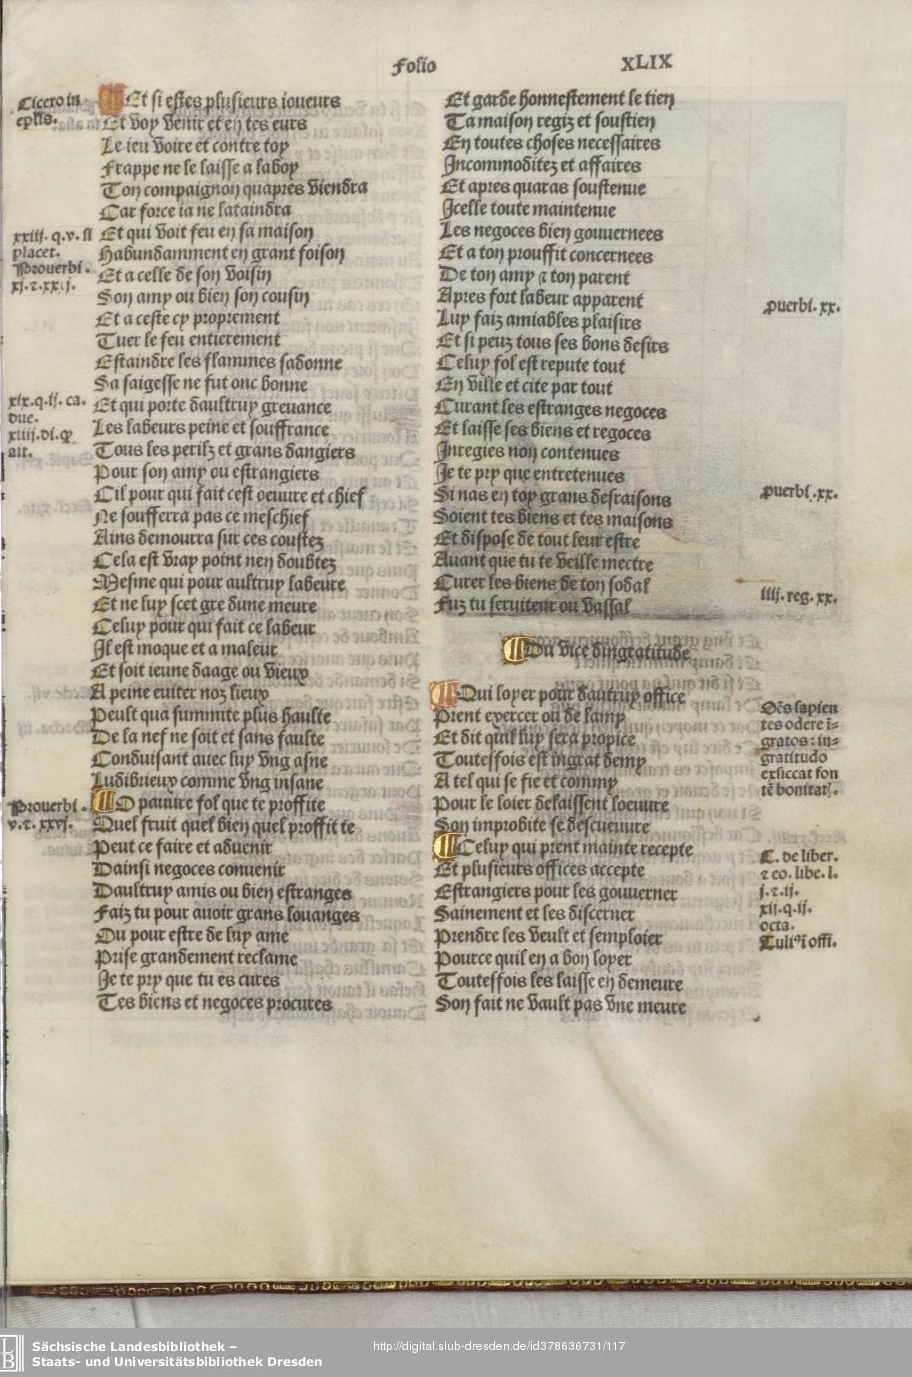 Folio XLIX
Cicero in
eplis.
Et si estes plusieurs ioueurs
Et voy venir et en tes eurs
Le ieu voire et contre toy
Frappe ne le laisse a laboy
Ton compaignon quapres viendra
Car force ia ne lataindra
xxiij. q. v. si
placet.
Prouerbi.
xj. ⁊. xx. j.
Et qui voit feu en sa maison
Habundamment en grant foison
Et a celle de son voisin
Son amy ou bien son cousin
Et a ceste cy proprement
Tuer le feu entierement
Estaindre les flammes sadonne
Sa saigesse ne fut onc bonne
xix. q. ij. ca.
due.
xiiij. di. ꝙ
ait.
Et qui porte daultruy greuance
Les labeurs peine et souffrance
Tous les perilz et grans dangiers
Pour son amy ou estrangiers
Cil pour qui fait cest oeuure et chief
Ne soufferra pas ce meschief
Ains demourra sur ces coustez
Cela est vray point nen doubtez
Mesme qui pour aultruy labeure
Et ne luy scet gre dune meure
Celuy pour qui fait ce labeur
Il est moque et a maleur
Et soit ieune daage ou vieux
A peine euiter noz lieux
Peult qua summite plus haulte
De la nef ne soit et sans faulte
Conduisant auec luy vng asne
Ludibrieux comme vng insane
Prouerbi.
v. ⁊. xxvj.
O pauure fol que te proffite
Quel fruit quel bien quel proffit te
Peut ce faire et aduenir
Dainsi negoces conuenir
Daultruy amis ou bien estranges
Faiz tu pour auoir grans louanges
Ou pour estre de luy ame
Prise grandement reclame
Ie te pry que tu es cures
Tes biens et negoces procures
Et garde honnestement le tien
Ta maison regiz et soustien
En toutes choses necessaires
Incommoditez et affaires
Et apres quaras soustenue
Icelle toute maintenue
Les negoces bien gouuernees
Et a ton prouffit concernees
De ton amy ⁊ ton parent
Apres fort labeur apparent
Luy faiz amiables plaisirs
Et si peuz tous ses bons desirs
ꝓuerbi. xx.
Celuy fol est repute tout
En ville et cite par tout
Curant les estranges negoces
Et laisse ses biens et regoces
Inregies non contenues
Ie te pry que entretenues
Si nas en toy grans desraisons
Soient tes biens et tes maisons
ꝓuerbi. xx.
Et dispose de tout leur estre
Auant que tu te veille mectre
Curer les biens de ton sodal
Fuz tu seruiteur ou vassal
iiij. reg. xx.
Du vice dingratitude
Qui loyer pour dautruy office
Prent exercer ou de lamy
Et dit quil luy sera propice
Toutesfois est ingrat demy
A tel qui se fie et commy
Pour le loier delaissent loeuure
Son improbite se descueuure
Oēs sapien
tes odere ī-
gratos: in-
gratitudo
exsiccat fon
tē bonitatꝭ.
Celuy qui prent mainte recepte
Et plusieurs offices accepte
Estrangiers pour les gouuerner
Sainement et les discerner
Prendre les veult et semploier
Pource quil en a bon loyer
Toutesfois les laisse en demeure
Son fait ne vault pas vne meure
C. de liber.
⁊ eo. libe. l.
j. ⁊. ij.
xij. q. ij.
octa.
Tuliꝰ ī offi.
Sächsische Landesbibliothek –
Staats- und Universitätsbibliothek Dresden
http://digital.slub-dresden.de/id378636731/117